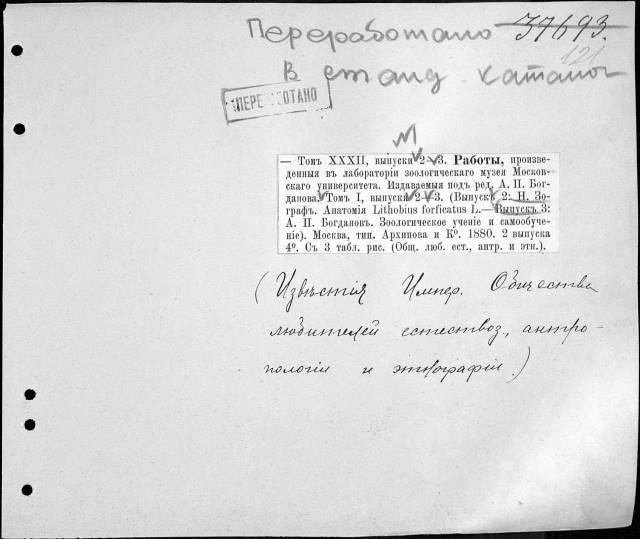 Переработано 37693.
121
в станд. каталог
ПЕРЕ ОТАНО
М
— Томъ XXXII, выпуски 2—3. Работы, произве-
денныя въ лабораторіи зоологическаго музея Москов-
скаго университета. Издаваемыя подъ ред. А. П. Бог-
данова. Томъ I, выпуски 2—3. (Выпускъ 2: Н. Зо-
графъ. Анатомія Lithobius forficatus L.—Выпускъ 3:
А. П. Богдановъ. Зоологическое ученіе и самообуче-
ніе). Москва, тип. Архипова и Ко. 1880. 2 выпуска
4о. Съ 3 табл. рис. (Общ. люб. ест., антр. и этн.).
(Извѣстія Импер. Общества
любителей естествоз., антро-
пологіи и этнографіи.)